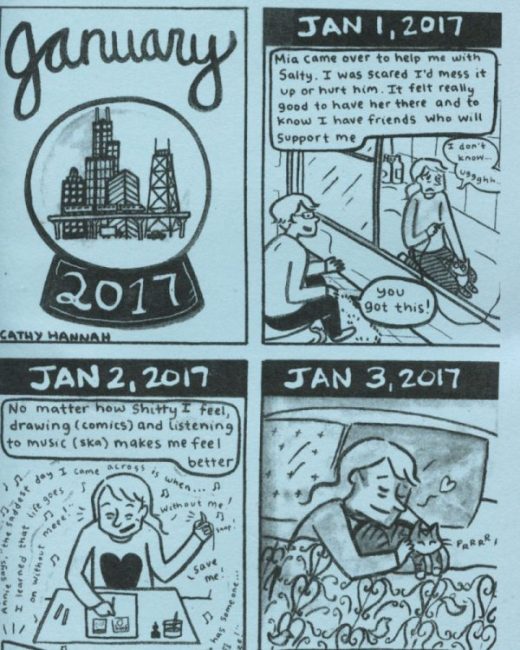 January
2017
CATHY HANNAH
JAN 1, 2017
Mia came over to help me with
Salty. I was scared I'd mess it
up or hurt him. It felt really
good to have her there and to
know I have friends who will
support me
I don't
know...
ugghh..
you
got this!
JAN 2, 2017
No matter how shitty I feel,
drawing (comics) and listening
to music (ska) makes me feel
better
Annie says, "the saddest day I came across is when...
I learned that life goes
on without me!
Without me!
snap!
save
me...
has someone...
JAN 3, 2017
PRRRR!